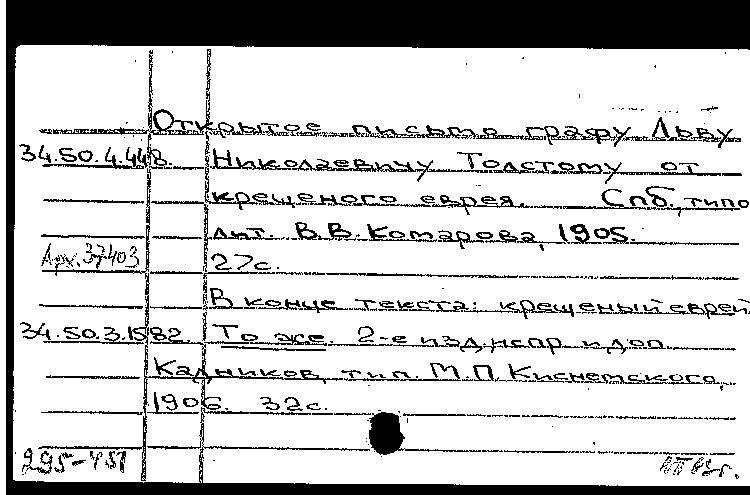 Открытое письмо графу Льву
34.50.4.448. Николаевичу Толстому от
крещеного еврея. Спб., типо
лит. В.В. Комарова, 1905.
Арх.37403 27с.
В конце текста: крещеный еврей
34.50.3.1582. То же. 2-е изд. испр. и доп.
Кадников, тип. М.П. Киснемского,
1906. 32с.
295-451